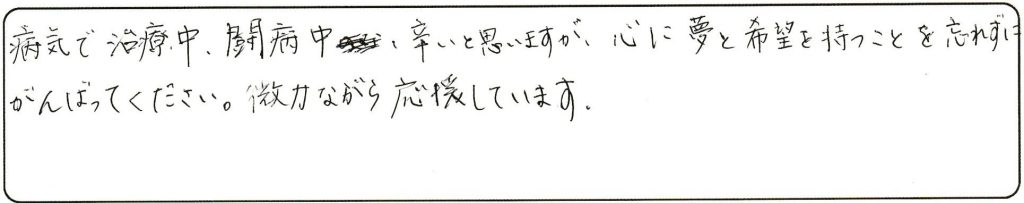 病気で治療中、闘病中、辛いと思いますが、心に夢と希望を持つことを忘れずに
がんばってください。微力ながら応援しています。